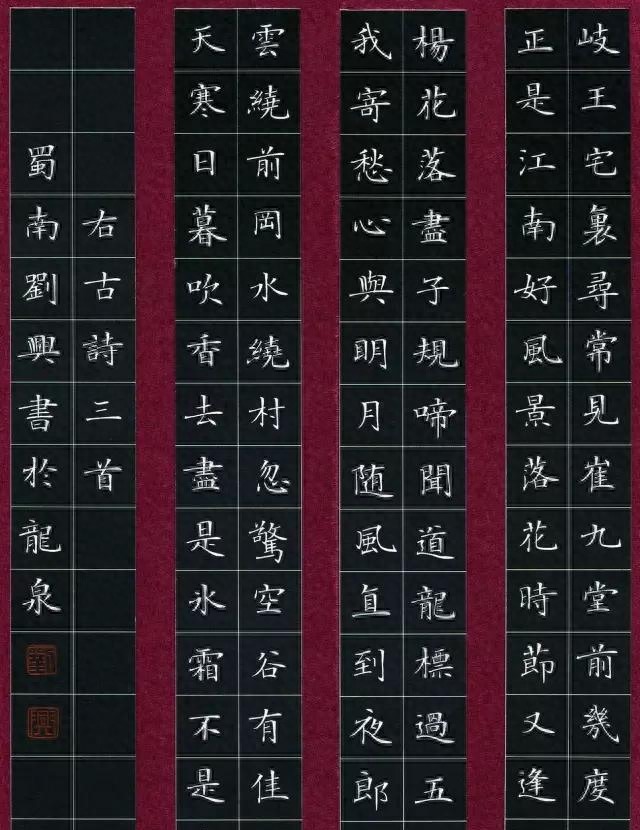 岐王宅裏尋常見崔九堂前幾度
正是江南好風景落花時節又逢
楊花落盡子規啼聞道龍標過五
我寄愁心與明月随風直到夜郎
雲繞前岡水繞村忽驚空谷有佳
天寒日暮吹香去盡是氷霜不是
右古詩三首
蜀南劉興書於龍泉
劉
興